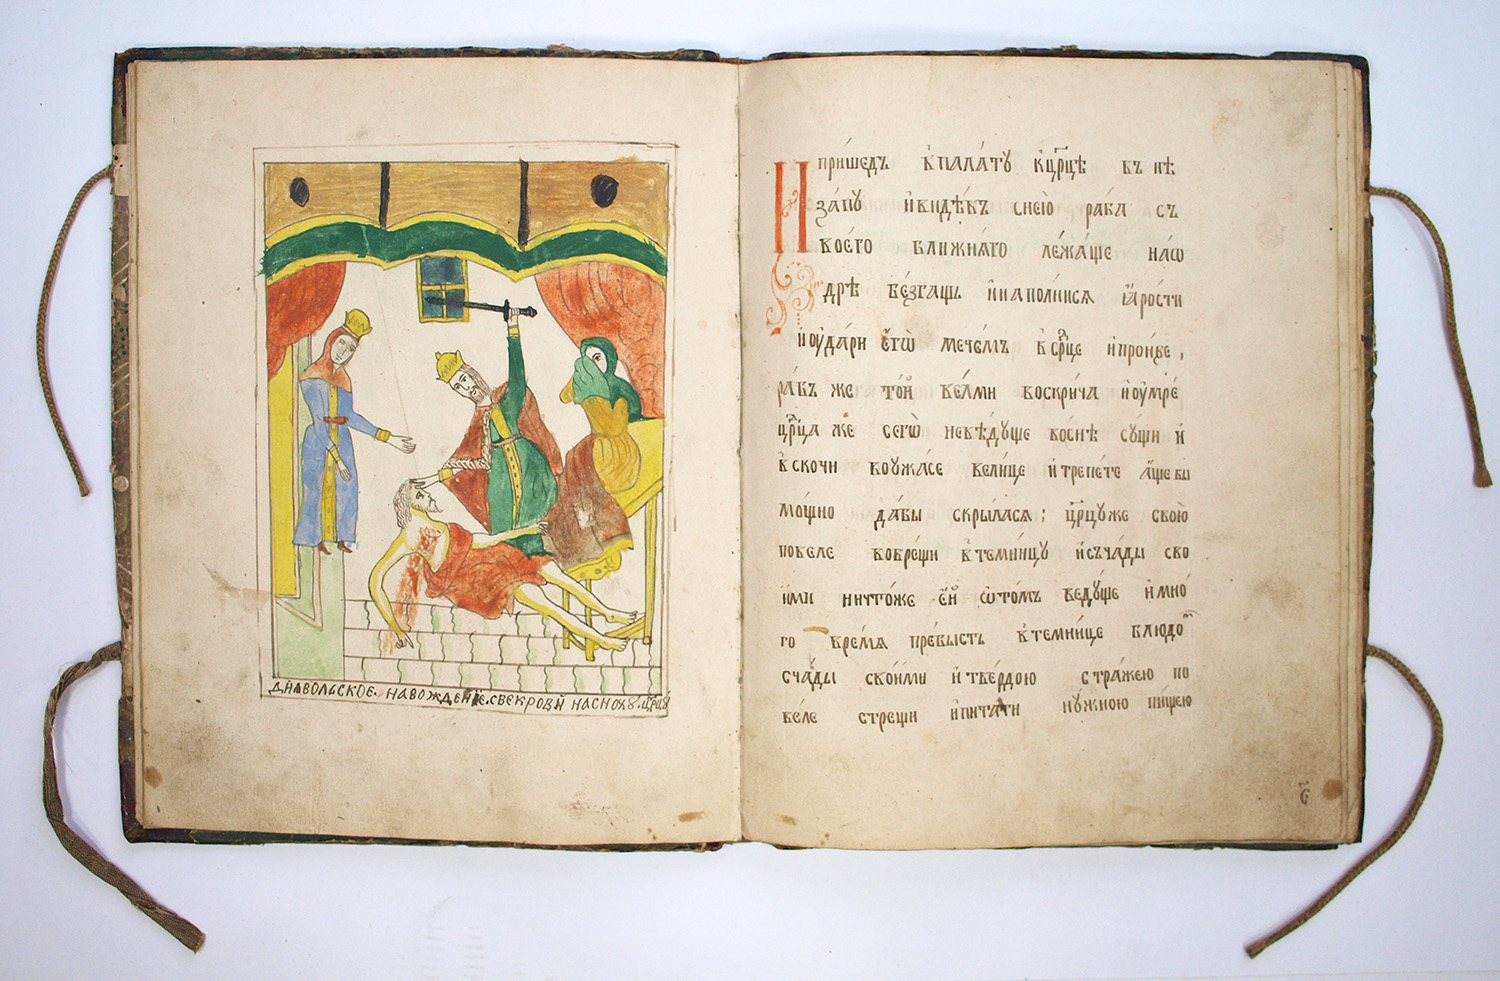 Дїѧвольское. навождение. свекровїи насноху. црцꙋ
И пришедъ впала́тꙋ кцр҃це въ нѣ
запꙋ ивидѣвъ снею раба съ
воего ближнѧго лежаще наѡ
дрѣ безгащь инаполнисѧ ꙗрости
иоудари его мечемъ всрⷣце ипронзе,
рабъ же той велми воскрича иоумре
црⷣца же сего неведуще воснѣ сущи и
вскочи воужасе велице итрепете аще бы
мощно дабы скрыласѧ; црцꙋ же свою
повеле воврещи втемницꙋ исъчады сво
ими ничтоже ей ѡтомъ ведуще имно
го времѧ пребысть втемнице блюдоⷨ
счады своими итвердою стражею по
веле стрещи ипитати нужною пищею